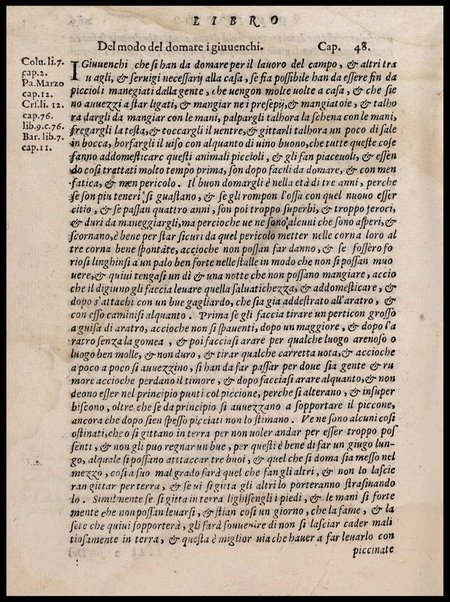 LIBRO
Del modo del domare i giuuenchi. Cap. 48.
Colu. li. 7.
cap. 2.
Pa. Marzo
cap. 12.
Crs. li. 12.
cap. 76.
lib. 9. c. 76.
Bar. lib. 7.
cap. 11.
I Giuuenchi che si han da domare per il lauoro del campo, & altri tra
uagli, & seruigi necessarij alla casa, se fia possibile han da essere fin da
piccioli manegiati dalla gente, che uengon molte uolte a casa, & che sie
no auuezzi a star ligati, & mangiar ne i presepij, & mangiatoie, & talho
ra dargli da mangiar con le mani, palpargli talhora la schena con le mani,
fregargli la testa, & toccargli il uentre, & gittarli talhora un poco di sale
in bocca, borfargli il uiso con alquanto di uino buono, che tutte queste cose
fanno addomesticar questi animali piccioli, & gli fan piaceuoli, & essen
do cosi trattati molto tempo prima, son dopo facili da domare, & con men
fatica, & men pericolo. Il buon domargli è nella età di tre anni, perche
se son piu teneri si guastano, & se gli rompon l'ossa con quel nuouo esser
citio, & se passan quattro anni, son poi troppo superbi, & troppo feroci,
& duri da maneggiarli, ma percioche ue ne sono alcuni che sono asperi, &
scornano, è bene per star sicuri da quel pericolo metter nelle corna loro al
tre corna bene spontate, accioche non possan far danno, & se fossero fo
riosi linghinsi à un palo ben forte nelle stalle in modo che non si possan mu
uere, & quiui tengasi un dì & una notte che non possano mangiare, accio
che il digiuno gli faccia leuare quella saluatichezza, & addomesticare, &
dopo s'attachi con un bue gagliardo, che sia gia addestrato all'aratro, &
con esso caminisi alquanto. Prima se gli faccia tirare un perticon grosso
a guisa di aratro, accioche non si spauenti, dopo un maggiore, & dopo l'a
ratro senza la gomea, & poi facciasi arare per qualche luogo arenoso o
luogo ben molle, & non duro, & tirar qualche carretta uota, & accioche
a poco a poco si auuezzino, si han da far passar per doue sia gente & ru
more accioche perdano il timore, & dopo facciasi arare alquanto, & non
deono esser nel principio punti col piccone, perche si alterano, & insuper
biscono, oltre che se da principio si auuezzano a sopportare il piccone,
ancora che dopo sien spesso piccati non lo stimano. Ve ne sono alcuni cosi
ostinati, che o si gittano in terra per non uoler andar per esser troppo pos
senti, & non gli puo regnar un bue, per questi è bene di far un giugo lun-
go, al quale si possano attaccar tre buoi, & quel che si doma sia messo nel
mezzo, cosi a suo mal grado farà quel che fan gli altri, & non lo lascie
ran gittar per terra, & se ui si gitta gli altri lo porteranno strasinando
lo. Similmente se si gitta in terra lighisengli i piedi, & le mani si forte
mente che non possan leuarsi, & stian cosi un giorno, che la fame, & la
sete che quiui sopporterà, gli farà souuenire di non si lasciar cader mali
tiosamente in terra, & questa è miglior uia che hauer a far leuarlo con
piccinate